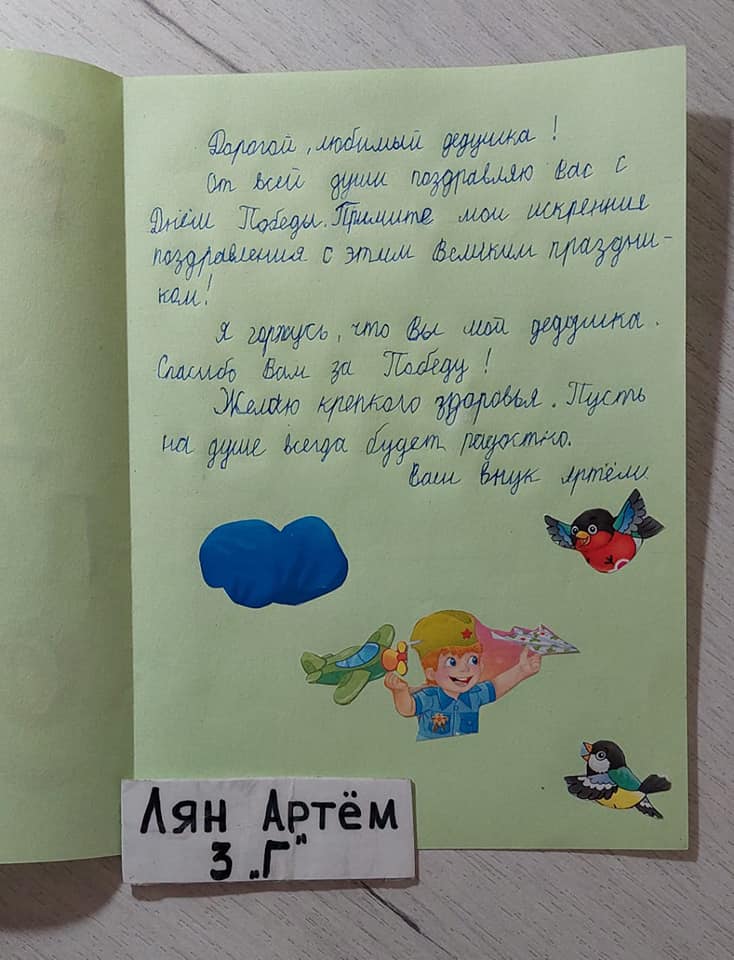 Дорогой, любимый дедушка!
От всей души поздравляю Вас с
Днём Победы. Примите мои искренние
поздравления с этим Великим праздни-
ком!
Я горжусь, что Вы мой дедушка.
Спасибо Вам за Победу!
Желаю крепкого здоровья. Пусть
на душе всегда будет радостно.
Ваш внук Артём
Лян Артём
3 „Г"